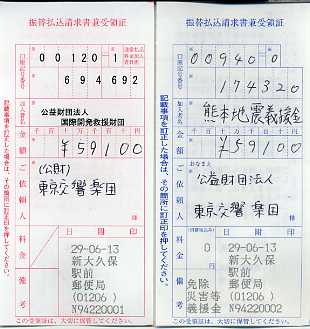 振替払込請求書兼受領証
口座記号番号
00120-1
通常払込料金加入者負担
694692
加入者名
公益財団法人
国際開発救援財団
金額
千百十万千百十円
¥59100
ご依頼人
(公財)
東京交響楽団
料金
日附印
備考
29-06-13
新大久保
駅前
郵便局
(01206)
N94220001
この受領証は、大切に保管してください。
記載事項を訂正した場合は、その箇所に訂正印を押してください。
振替払込請求書兼受領証
口座記号番号
00940-0
174320
加入者名
熊本地震義援金
金額
千百十万千百十円
¥59100
ご依頼人
おなまえ
公益財団法人
東京交響楽団
料金
(消費税込み)
0
円
日附印
備考
29-06-13
新大久保
駅前
免除 郵便局
災害等 (01206)
義援金 N94220002
この受領証は、大切に保管してください。
記載事項を訂正した場合は、その箇所に訂正印を押してください。